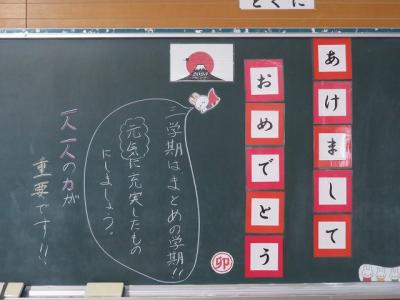 とくに
あけまして
おめでとう
2023
三学期はまとめの学期!!
元気に充実したもの
にしましょう。
一人一人の力が
重要です!!
卯